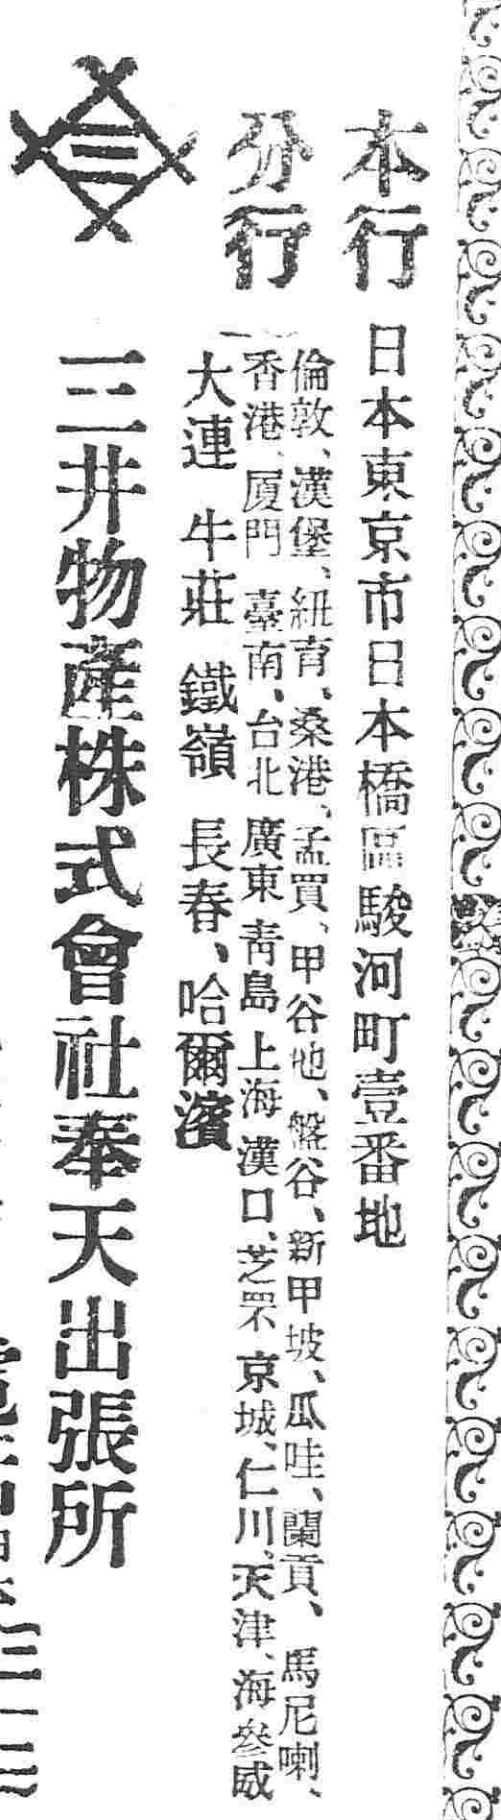 本行 日本東京市日本橋區駿河町壹番地
分行
倫敦、漢堡、紐育、桑港、孟買、甲谷地、盤谷、新甲坡、瓜哇、蘭貢、馬尼喇、
香港、厦門 臺南、台北 廣東 青島 上海 漢口、芝罘 京城、仁川、天津、海參威
大連 牛莊 鐵嶺 長春、哈爾濱
三
三井物產株式會社奉天出張所